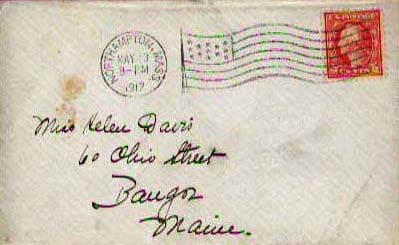 NORTHAMPTON, MASS.
MAY 13
8-PM
1917
U.S. POSTAGE
2 CENTS 2
Miss Helen Davis
60 Ohio Street
Bangor
Maine.